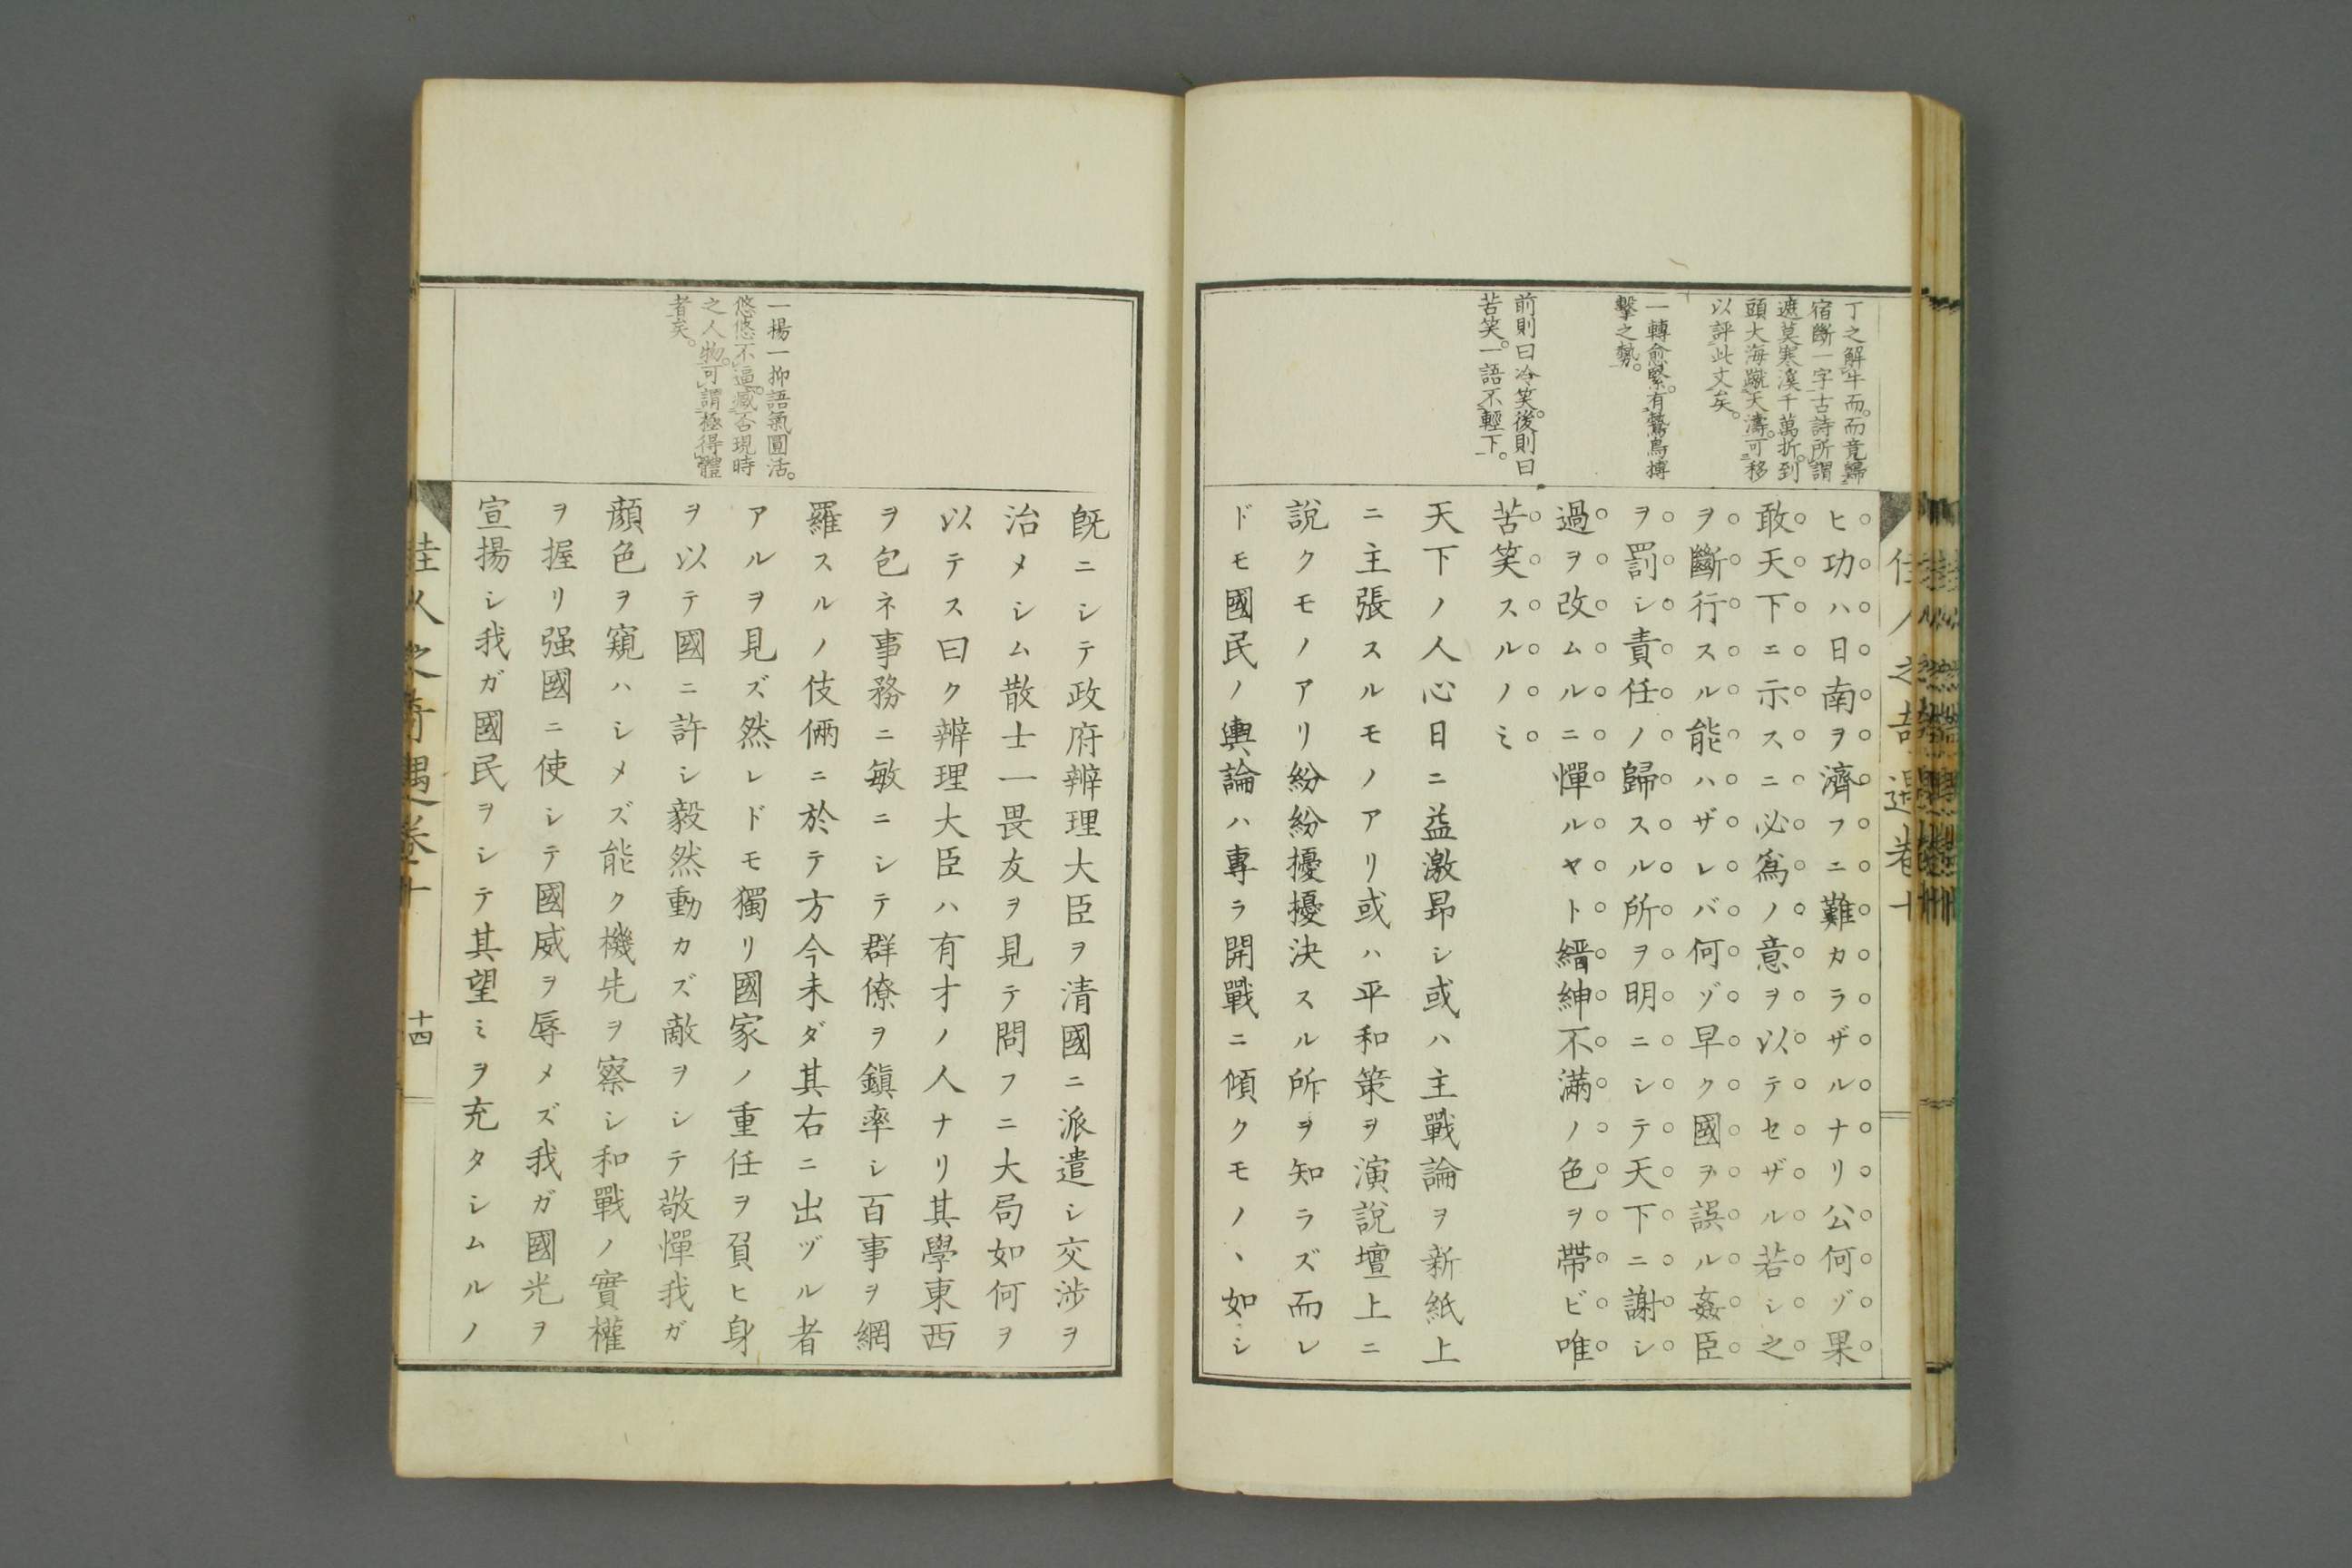 佳人之奇遇卷十
丁之解牛而。而竟歸
宿斷一字古詩所謂
遮莫寒溪千萬折。到
頭大海蹴天濤。可移
以評此丈矣。
一轉愈緊。有鷙鳥搏
擊之勢。
前則曰冷笑。後則曰
苦笑。一語不輕下。
ヒ功ハ日南ヲ濟フニ難カラザルナリ公何ゾ果
敢天下ニ示スニ必爲ノ意ヲ以テセザル若シ之
ヲ斷行スル能ハザレバ何ゾ早ク國ヲ誤ル姦臣
ヲ罰シ責任ノ歸スル所ヲ明ニシテ天下ニ謝シ
過ヲ改ムルニ憚ルヤト縉紳不滿ノ色ヲ帶ビ唯
苦笑スルノミ
天下ノ人心日ニ益激昂シ或ハ主戰論ヲ新紙上
ニ主張スルモノアリ或ハ平和策ヲ演説壇上ニ
説クモノアリ紛紛擾擾決スル所ヲ知ラズ而レ
ドモ國民ノ輿論ハ專ラ開戰ニ傾クモノヽ如シ
一揚一抑語氣圓活。
悠悠不逼。臧否現時
之人物。可謂極得體
者矣。
既ニシテ政府辨理大臣ヲ清國ニ派遣シ交渉ヲ
治メシム散士一畏友ヲ見テ問フニ大局如何ヲ
以テス曰ク辨理大臣ハ有才ノ人ナリ其學東西
ヲ包ネ事務ニ敏ニシテ群僚ヲ鎭率シ百事ヲ網
羅スルノ伎倆ニ於テ方今未ダ其右ニ出ヅル者
アルヲ見ズ然レドモ獨リ國家ノ重任ヲ負ヒ身
ヲ以テ國ニ許シ毅然動カズ敵ヲシテ敬憚我ガ
顏色ヲ窺ハシメズ能ク機先ヲ察シ和戰ノ實權
ヲ握リ强國ニ使シテ國威ヲ辱メズ我ガ國光ヲ
宣揚シ我ガ國民ヲシテ其望ミヲ充タシムルノ
佳人之奇遇卷十
十四